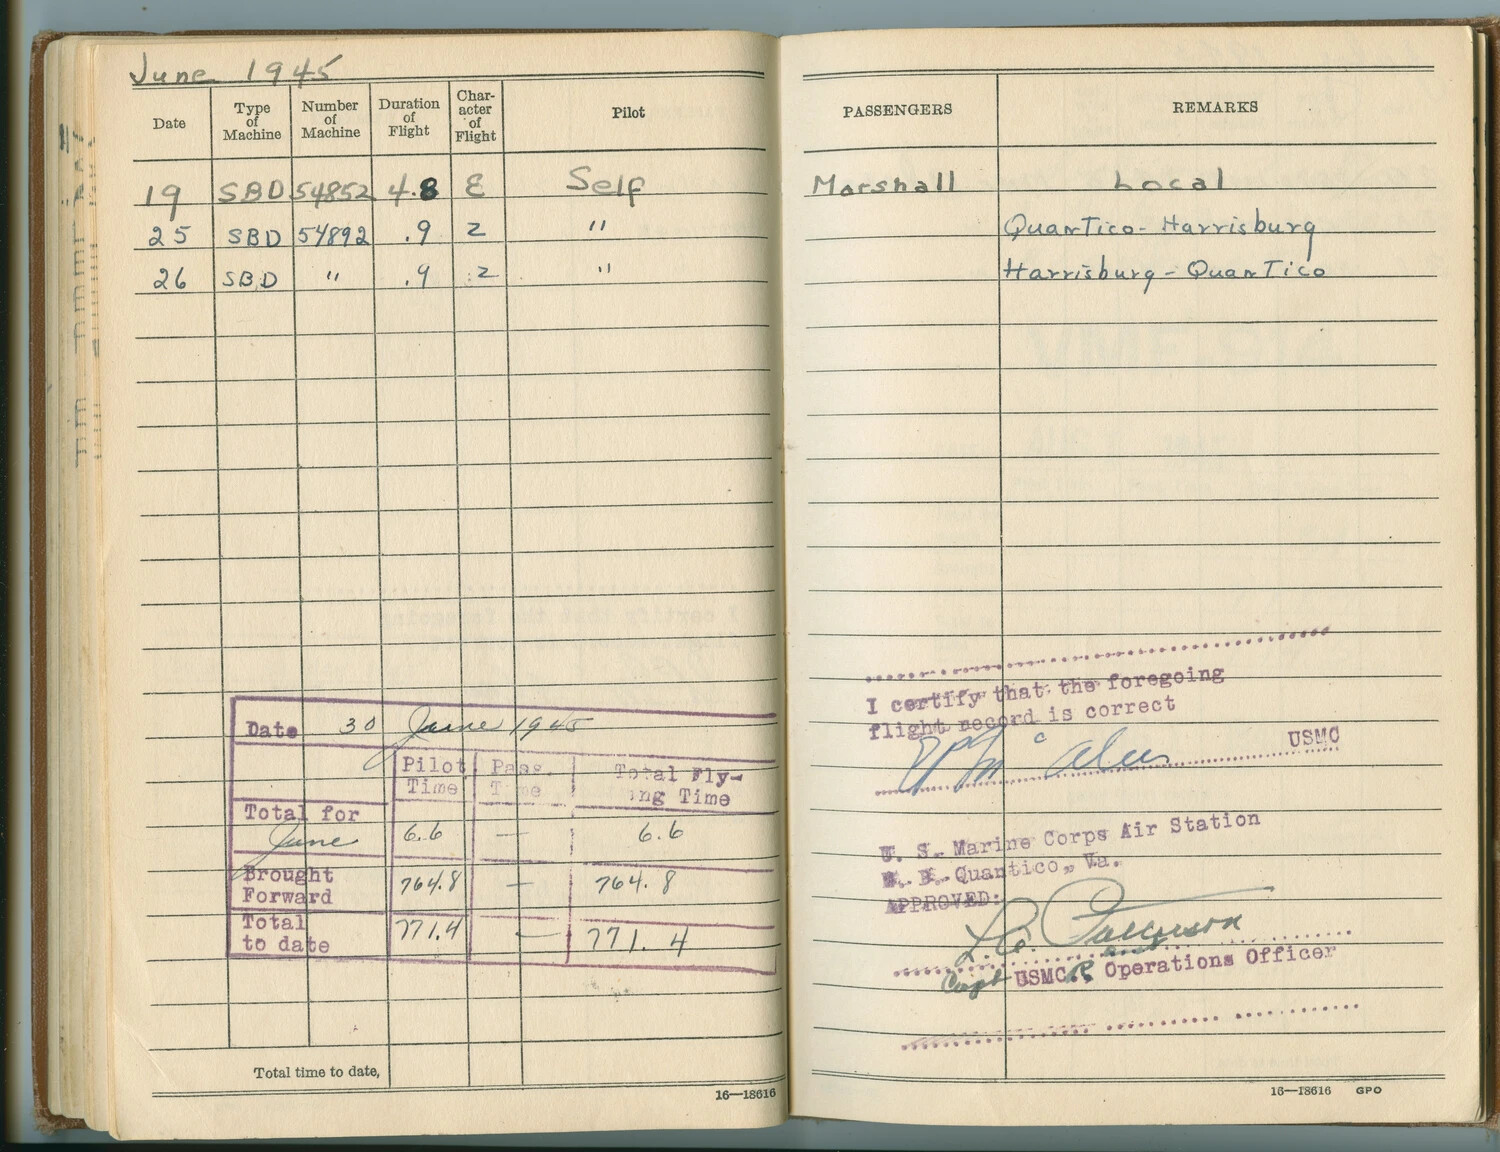 June 1945
Date Type of Machine Number of Machine Duration of Flight Char-acter of Flight Pilot PASSENGERS REMARKS
19 SBD 54852 4.8 E Self Marshall Local
25 SBD 54892 .9 Z " Quantico - Harrisburg
26 SBD " .9 Z " Harrisburg - Quantico
Date 30 June 1945
Pilot Time Pass. Time Total Fly-ing Time
Total for June 6.6 — 6.6
Brought Forward 764.8 — 764.8
Total to date 771.4 — 771.4
Total time to date,
16—18616
I certify that the foregoing
flight record is correct
USMC
U. S. Marine Corps Air Station
Quantico, Va.
APPROVED:
L. C. Patterson
Capt USMCR Operations Officer
16—18616 GPO